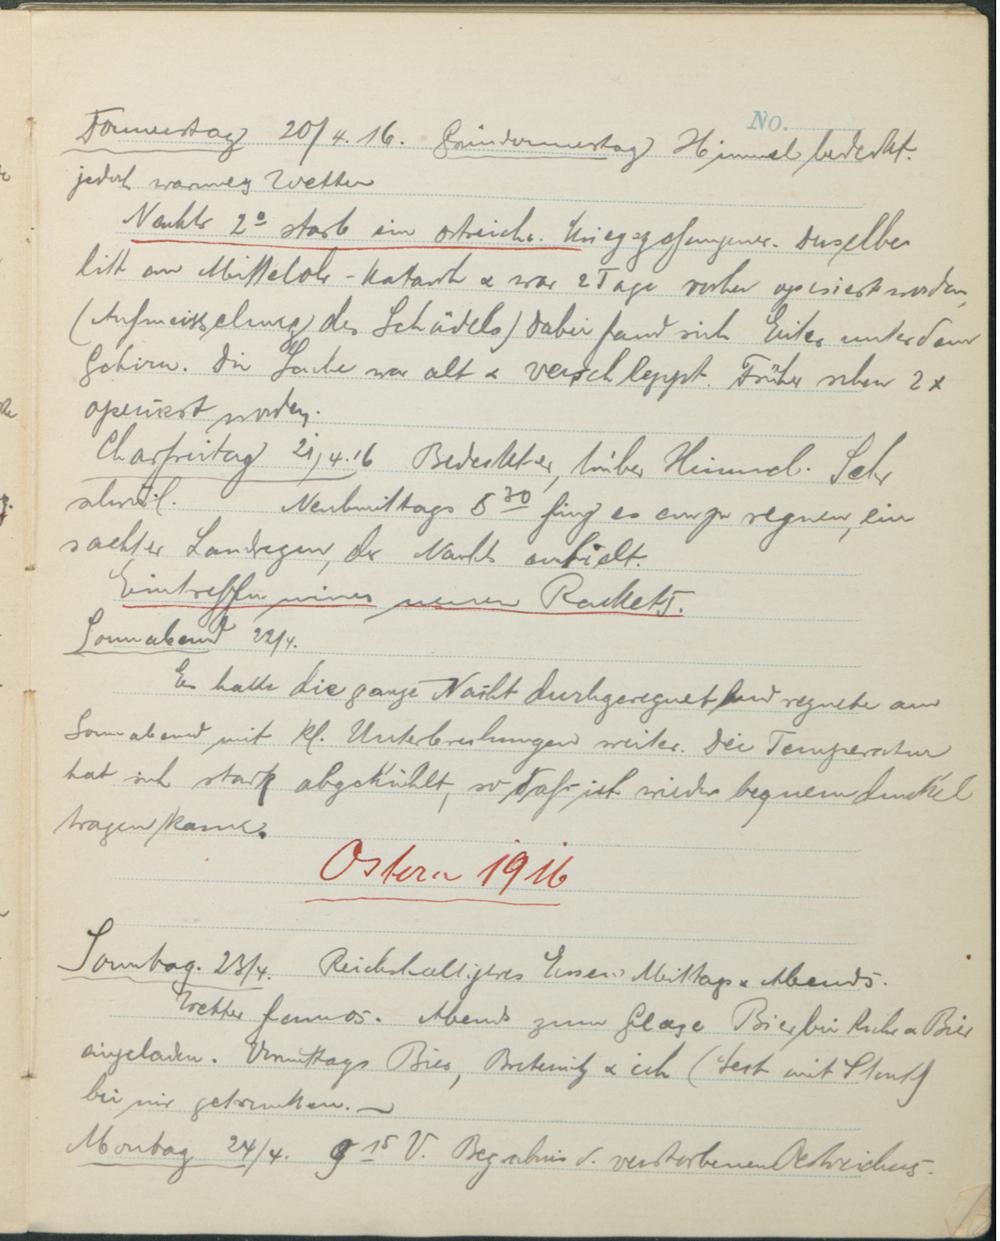 No.
Donnerstag 20/4.16. Gründonnerstag Himmel bedeckt.
jedoch warmes Wetter
Nachts 2⁰ starb ein östreich. Kriegsgefangener. Derselbe
litt an Mittelohr-Katarrh & war 2 Tage vorher operiert worden,
(Aufmeisselung des Schädels) Dabei fand sich Eiter unter dem
Gehirn. Die Sache war alt & verschleppt. Früher schon 2 x
operiert worden.
Charfreitag 21/4.16 Bedeckter, trüber Himmel. Sehr
schwül. Nachmittags 5 30 fing es an zu regnen, ein
sachter Landregen, der Nachts anhielt.
Eintreffen eines neuen Rackets.
Sonnabend 22/4.
Es hatte die ganze Nacht durchgeregnet und regnete am
Sonnabend mit kl. Unterbrechungen weiter. Die Temperatur
hat sich stark abgekühlt, so daß ich wieder bequem dunkel
tragen kann.
Ostern 1916
Sonntag. 23/4. Reichhaltigeres Essen Mittags & Abends.
Wetter famos. Abends zum Glase Bier bei & Bier
eingeladen. Vormittags Bier, & ich (Sekt mit
bei mir getrunken.
Montag 24/4. 9 15 V. Begräbnis d. verstorbenen Oestreichers.